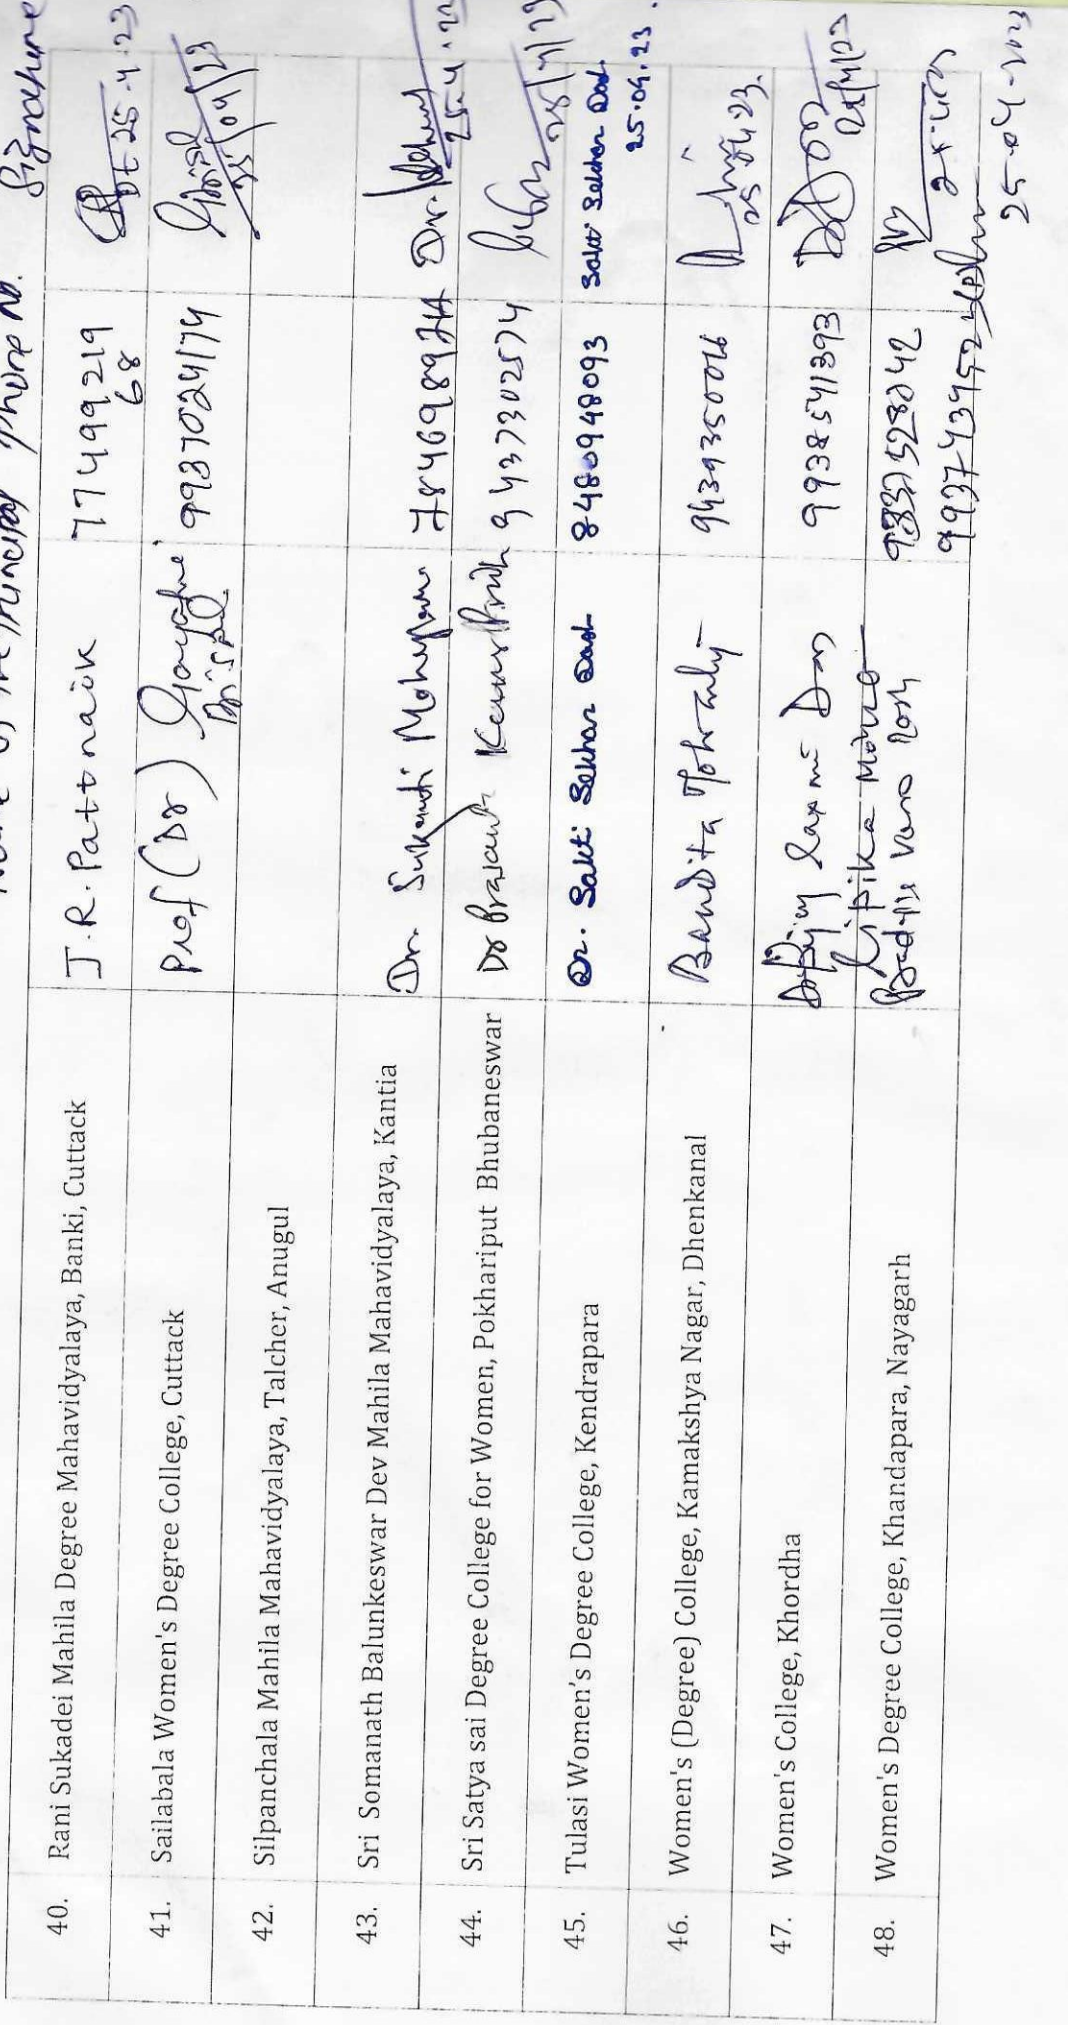 Name of the Principal Phone no. Signature
40. Rani Sukadei Mahila Degree Mahavidyalaya, Banki, Cuttack J.R. Pattnaik 77499219 68 25.4.23
41. Sailabala Women's Degree College, Cuttack Prof (Dr) Gayatri 9937024174 25/04/23
42. Silpanchala Mahila Mahavidyalaya, Talcher, Anugul
43. Sri Somanath Balunkeswar Dev Mahila Mahavidyalaya, Kantia Dr. Sukanti Dr. 25.4.23
44. Sri Satya sai Degree College for Women, Pokhariput Bhubaneswar Dr Prasant Kumar 9437302574
45. Tulasi Women's Degree College, Kendrapara Dr. Sakti Sekhar Dash 8480948093 Sakti Sekhar Dash
25.04.23
46. Women's (Degree) College, Kamakshya Nagar, Dhenkanal Bandita Mohanty 25.04.23
47. Women's College, Khordha Laxmi Das 9938541393
48. Women's Degree College, Khandapara, Nayagarh
25-04-2023